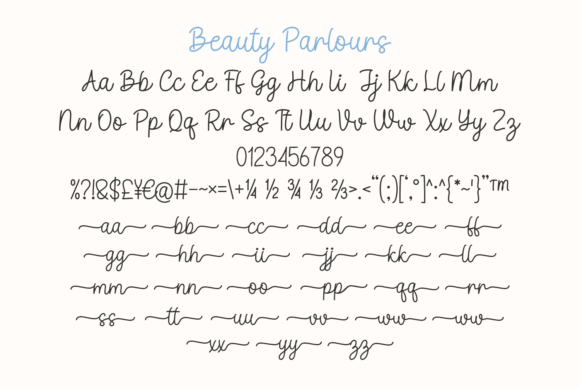 Beauty Parlours
Aa Bb Cc Ee Ff Gg Hh Ii Jj Kk Ll Mm
Nn Oo Pp Qq Rr Ss Tt Uu Vv Ww Xx Yy Zz
0123456789
%?!&$£¥€@#-~×=\+¼ ½ ¾ ⅓ ⅔>.<“(;)[‘,°]^:^{*~'}”™
aa bb cc dd ee ff
gg hh ii jj kk ll
mm nn oo pp qq rr
ss tt uu vv ww ww
xx yy zz